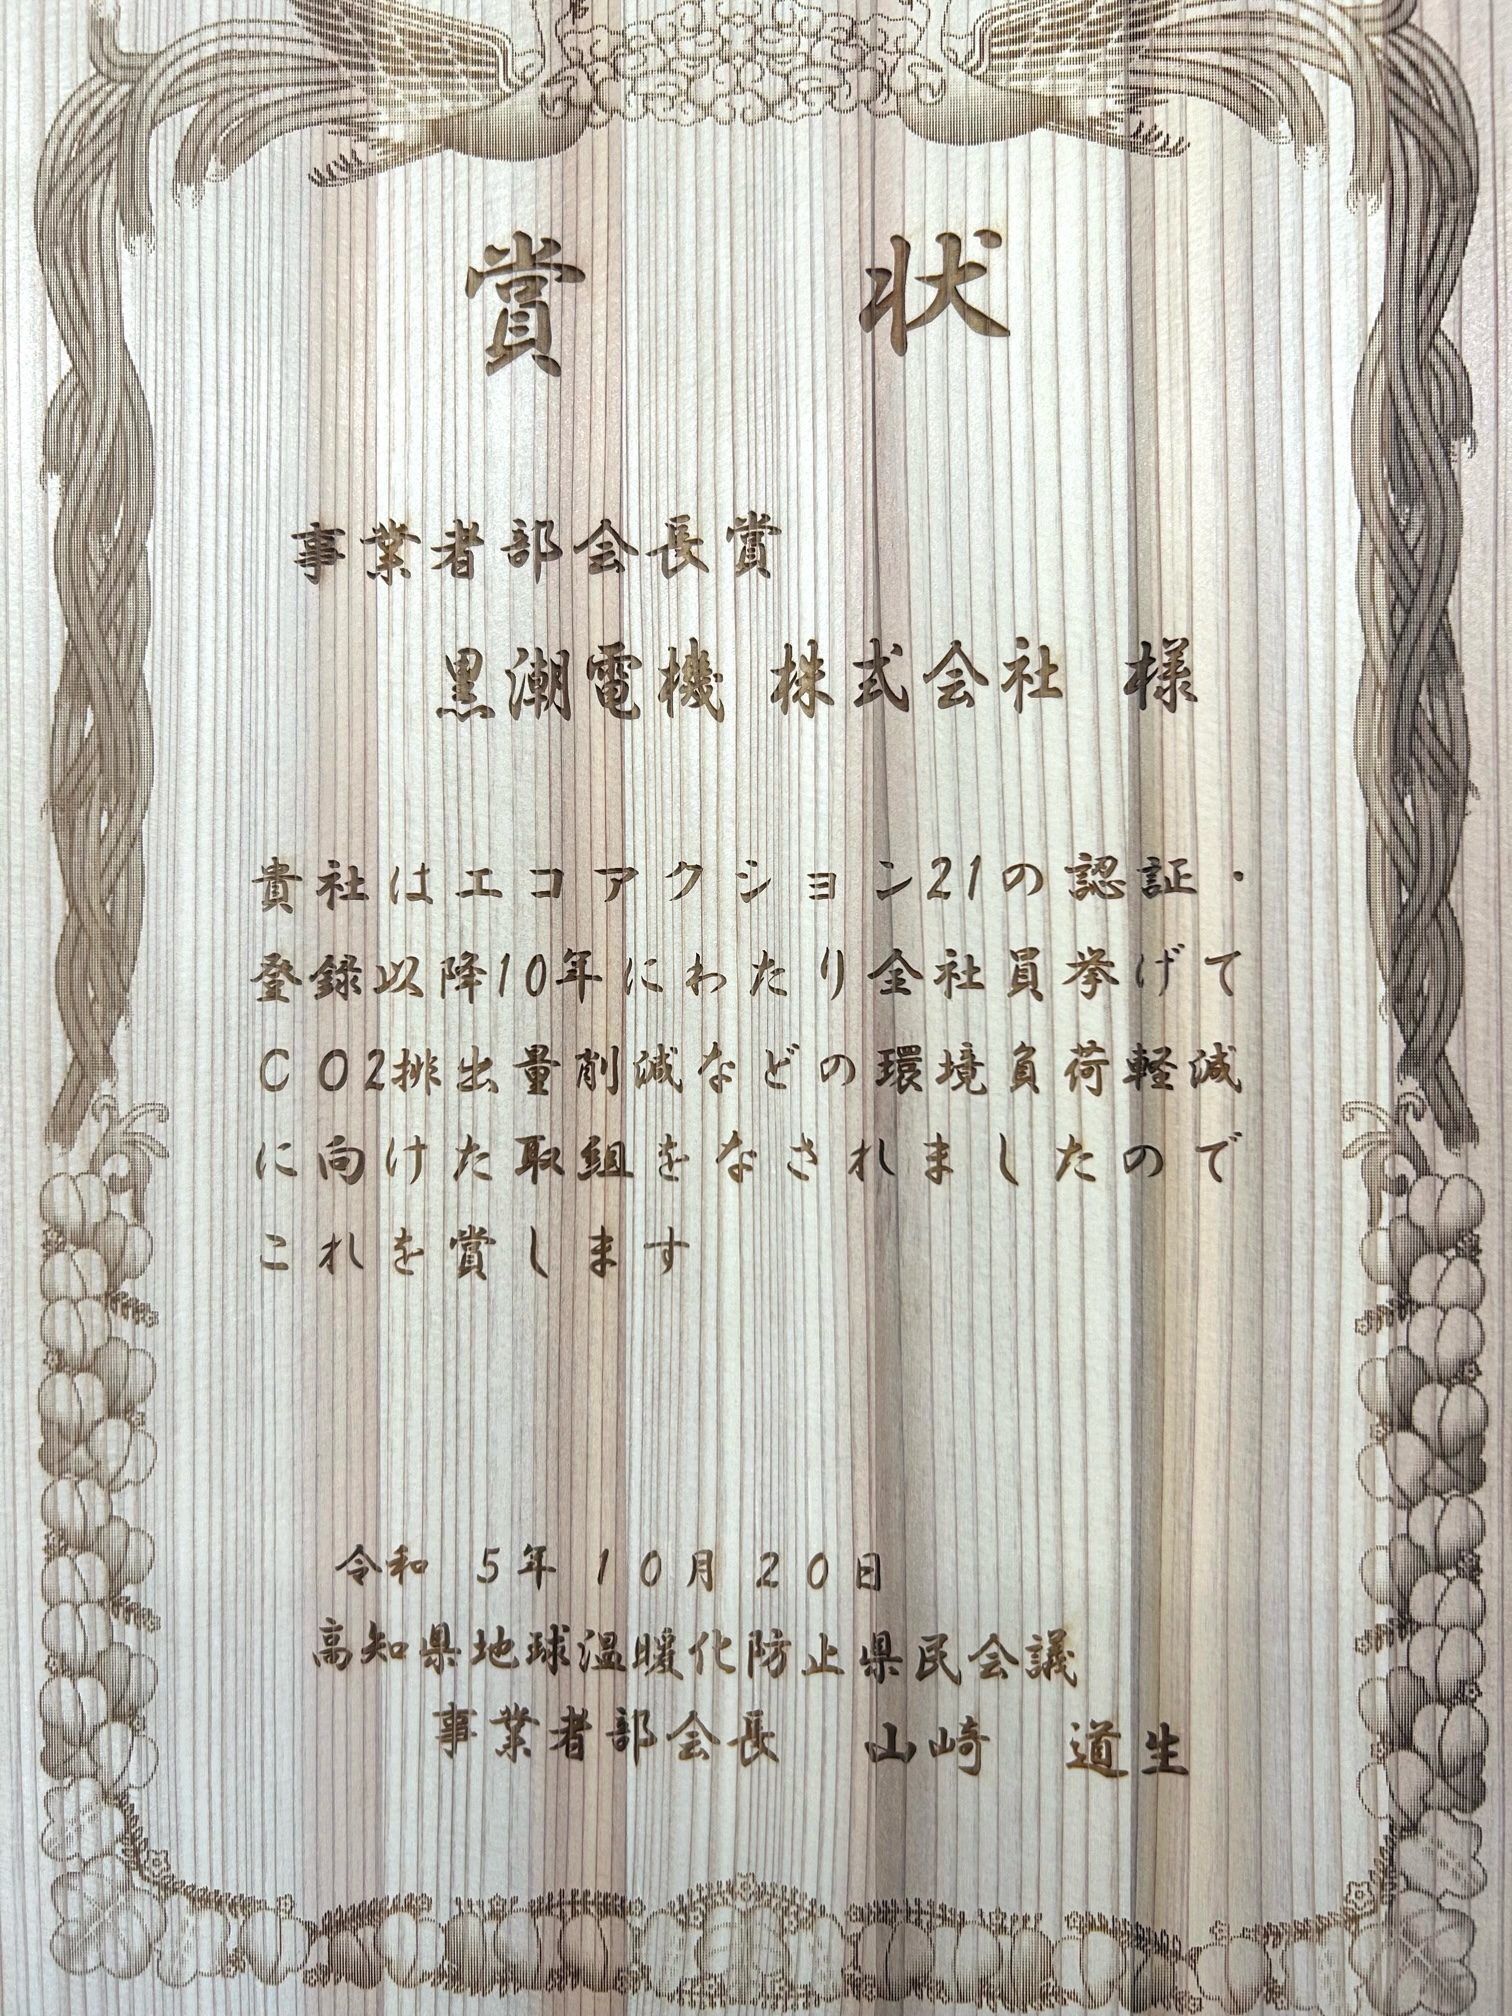 賞 状
事業者部会長賞
黒潮電機 株式会社 様
貴社はエコアクション21の認証・
登録以降10年にわたり全社員挙げて
CO2排出量削減などの環境負荷軽減
に向けた取組をなされましたので
これを賞します
令和 5年 10月 20日
高知県地球温暖化防止県民会議
事業者部会長 山崎 道生